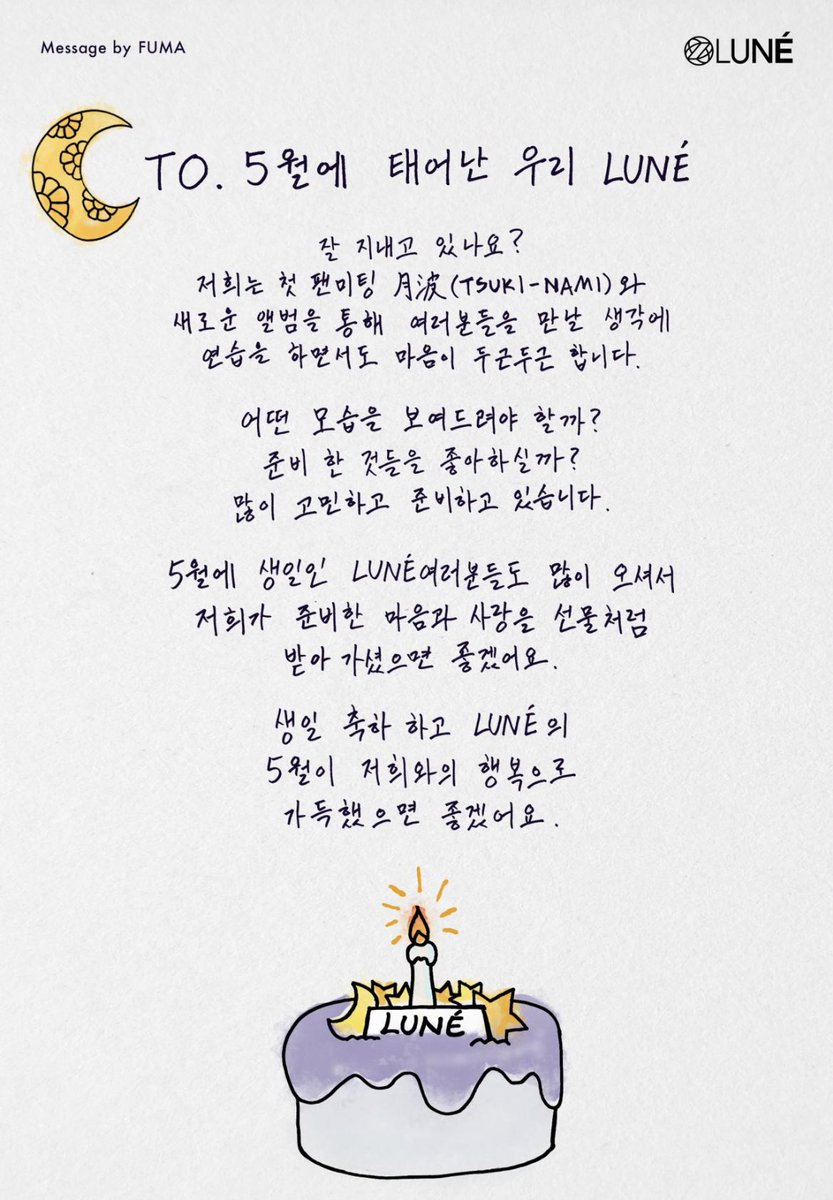 Message by FUMA
LUNÉ
TO. 5월에 태어난 우리 LUNÉ
잘 지내고 있나요?
저희는 첫 팬미팅 月波(TSUKI-NAMI)와
새로운 앨범을 통해 여러분들을 만날 생각에
연습을 하면서도 마음이 두근두근 합니다.
어떤 모습을 보여드려야 할까?
준비 한 것들을 좋아하실까?
많이 고민하고 준비하고 있습니다.
5월에 생일인 LUNÉ여러분들도 많이 오셔서
저희가 준비한 마음과 사랑을 선물처럼
받아 가셨으면 좋겠어요.
생일 축하 하고 LUNÉ의
5월이 저희와의 행복으로
가득했으면 좋겠어요.
LUNÉ